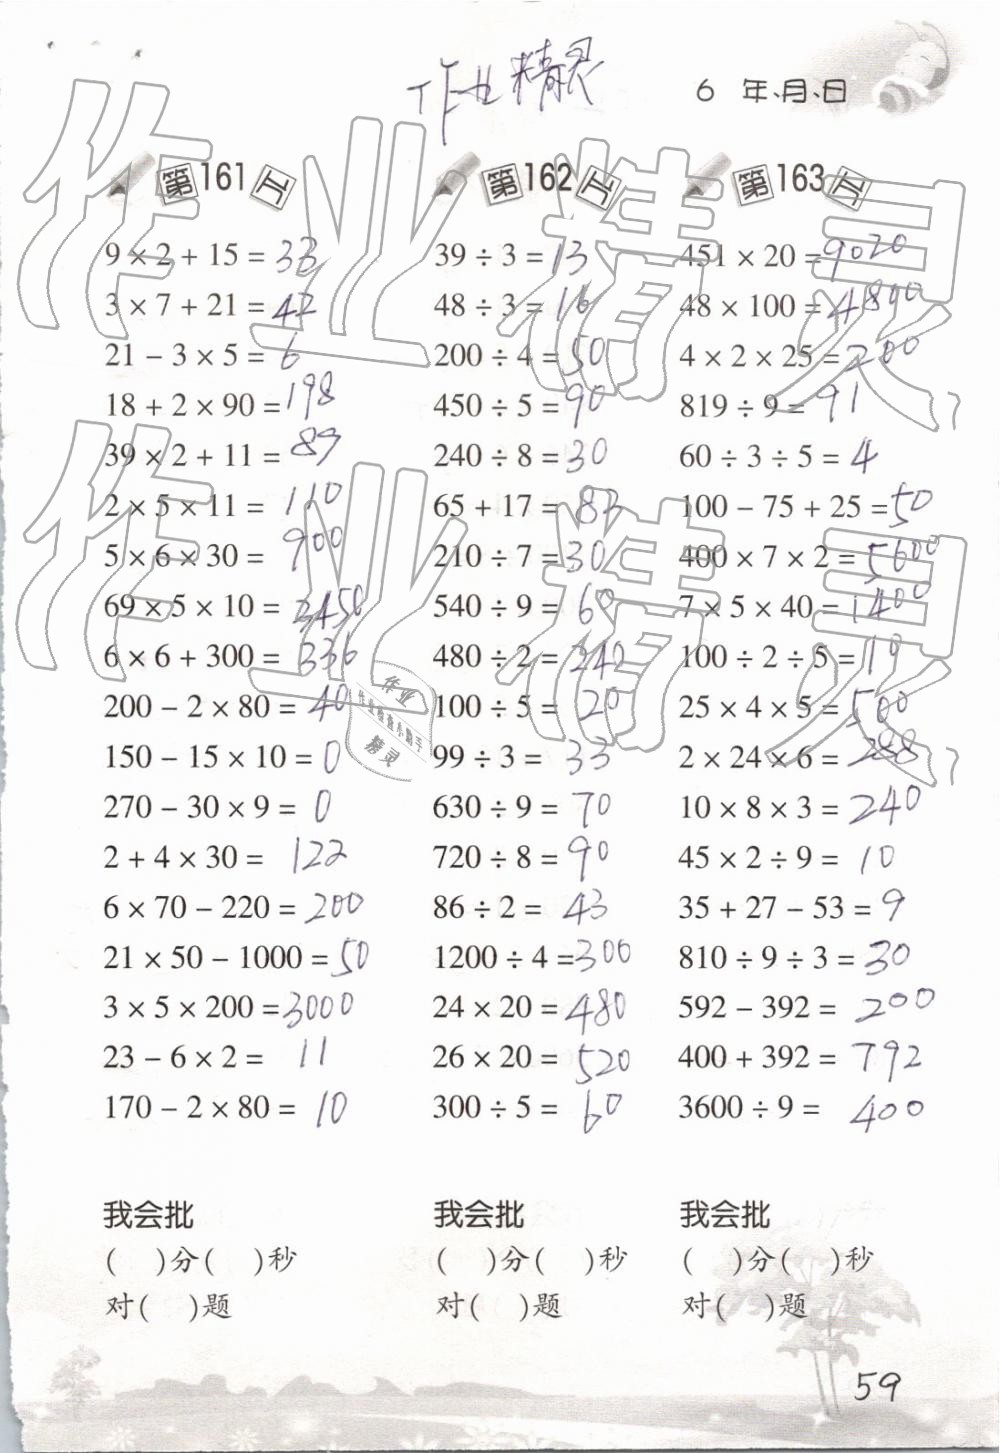 作业精灵
6 年、月、日
第161页
9 × 2 + 15 = 33
3 × 7 + 21 = 42
21 − 3 × 5 = 6
18 + 2 × 90 = 198
39 × 2 + 11 = 89
2 × 5 × 11 = 110
5 × 6 × 30 = 900
69 × 5 × 10 = 3450
6 × 6 + 300 = 336
200 − 2 × 80 = 40
150 − 15 × 10 = 0
270 − 30 × 9 = 0
2 + 4 × 30 = 122
6 × 70 − 220 = 200
21 × 50 − 1000 = 50
3 × 5 × 200 = 3000
23 − 6 × 2 = 11
170 − 2 × 80 = 10
我会批
( )分( )秒
对( )题
第162页
39 ÷ 3 = 13
48 ÷ 3 = 16
200 ÷ 4 = 50
450 ÷ 5 = 90
240 ÷ 8 = 30
65 + 17 = 82
210 ÷ 7 = 30
540 ÷ 9 = 60
480 ÷ 2 = 242
100 ÷ 5 = 20
99 ÷ 3 = 33
630 ÷ 9 = 70
720 ÷ 8 = 90
86 ÷ 2 = 43
1200 ÷ 4 = 300
24 × 20 = 480
26 × 20 = 520
300 ÷ 5 = 60
我会批
( )分( )秒
对( )题
第163页
451 × 20 = 9020
48 × 100 = 4800
4 × 2 × 25 = 200
819 ÷ 9 = 91
60 ÷ 3 ÷ 5 = 4
100 − 75 + 25 = 50
400 × 7 × 2 = 5600
7 × 5 × 40 = 1400
100 ÷ 2 ÷ 5 = 10
25 × 4 × 5 = 500
2 × 24 × 6 = 288
10 × 8 × 3 = 240
45 × 2 ÷ 9 = 10
35 + 27 − 53 = 9
810 ÷ 9 ÷ 3 = 30
592 − 392 = 200
400 + 392 = 792
3600 ÷ 9 = 400
我会批
( )分( )秒
对( )题
59
作业精灵
作业精灵
作业
作业检查小助手
精灵